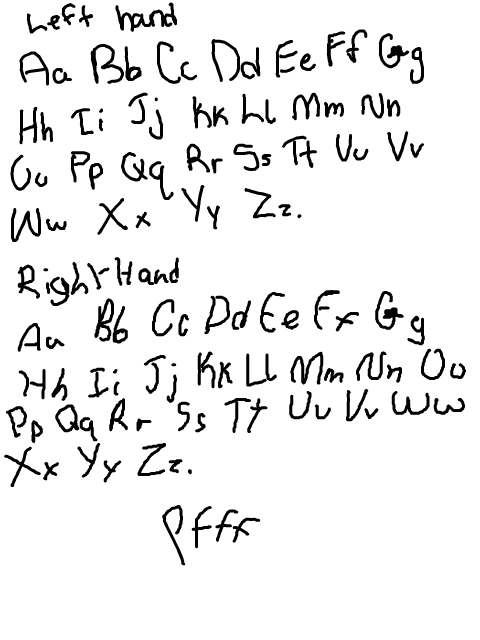 Left hand
Aa Bb Cc Dd Ee Ff Gg
Hh Ii Jj Kk Ll Mm Nn
Oo Pp Qq Rr Ss Tt Uu Vv
Ww Xx Yy Zz.
Right Hand
Aa Bb Cc Dd Ee Ff Gg
Hh Ii Jj Kk Ll Mm Nn Oo
Pp Qq Rr Ss Tt Uu Vv Ww
Xx Yy Zz.
Pfff